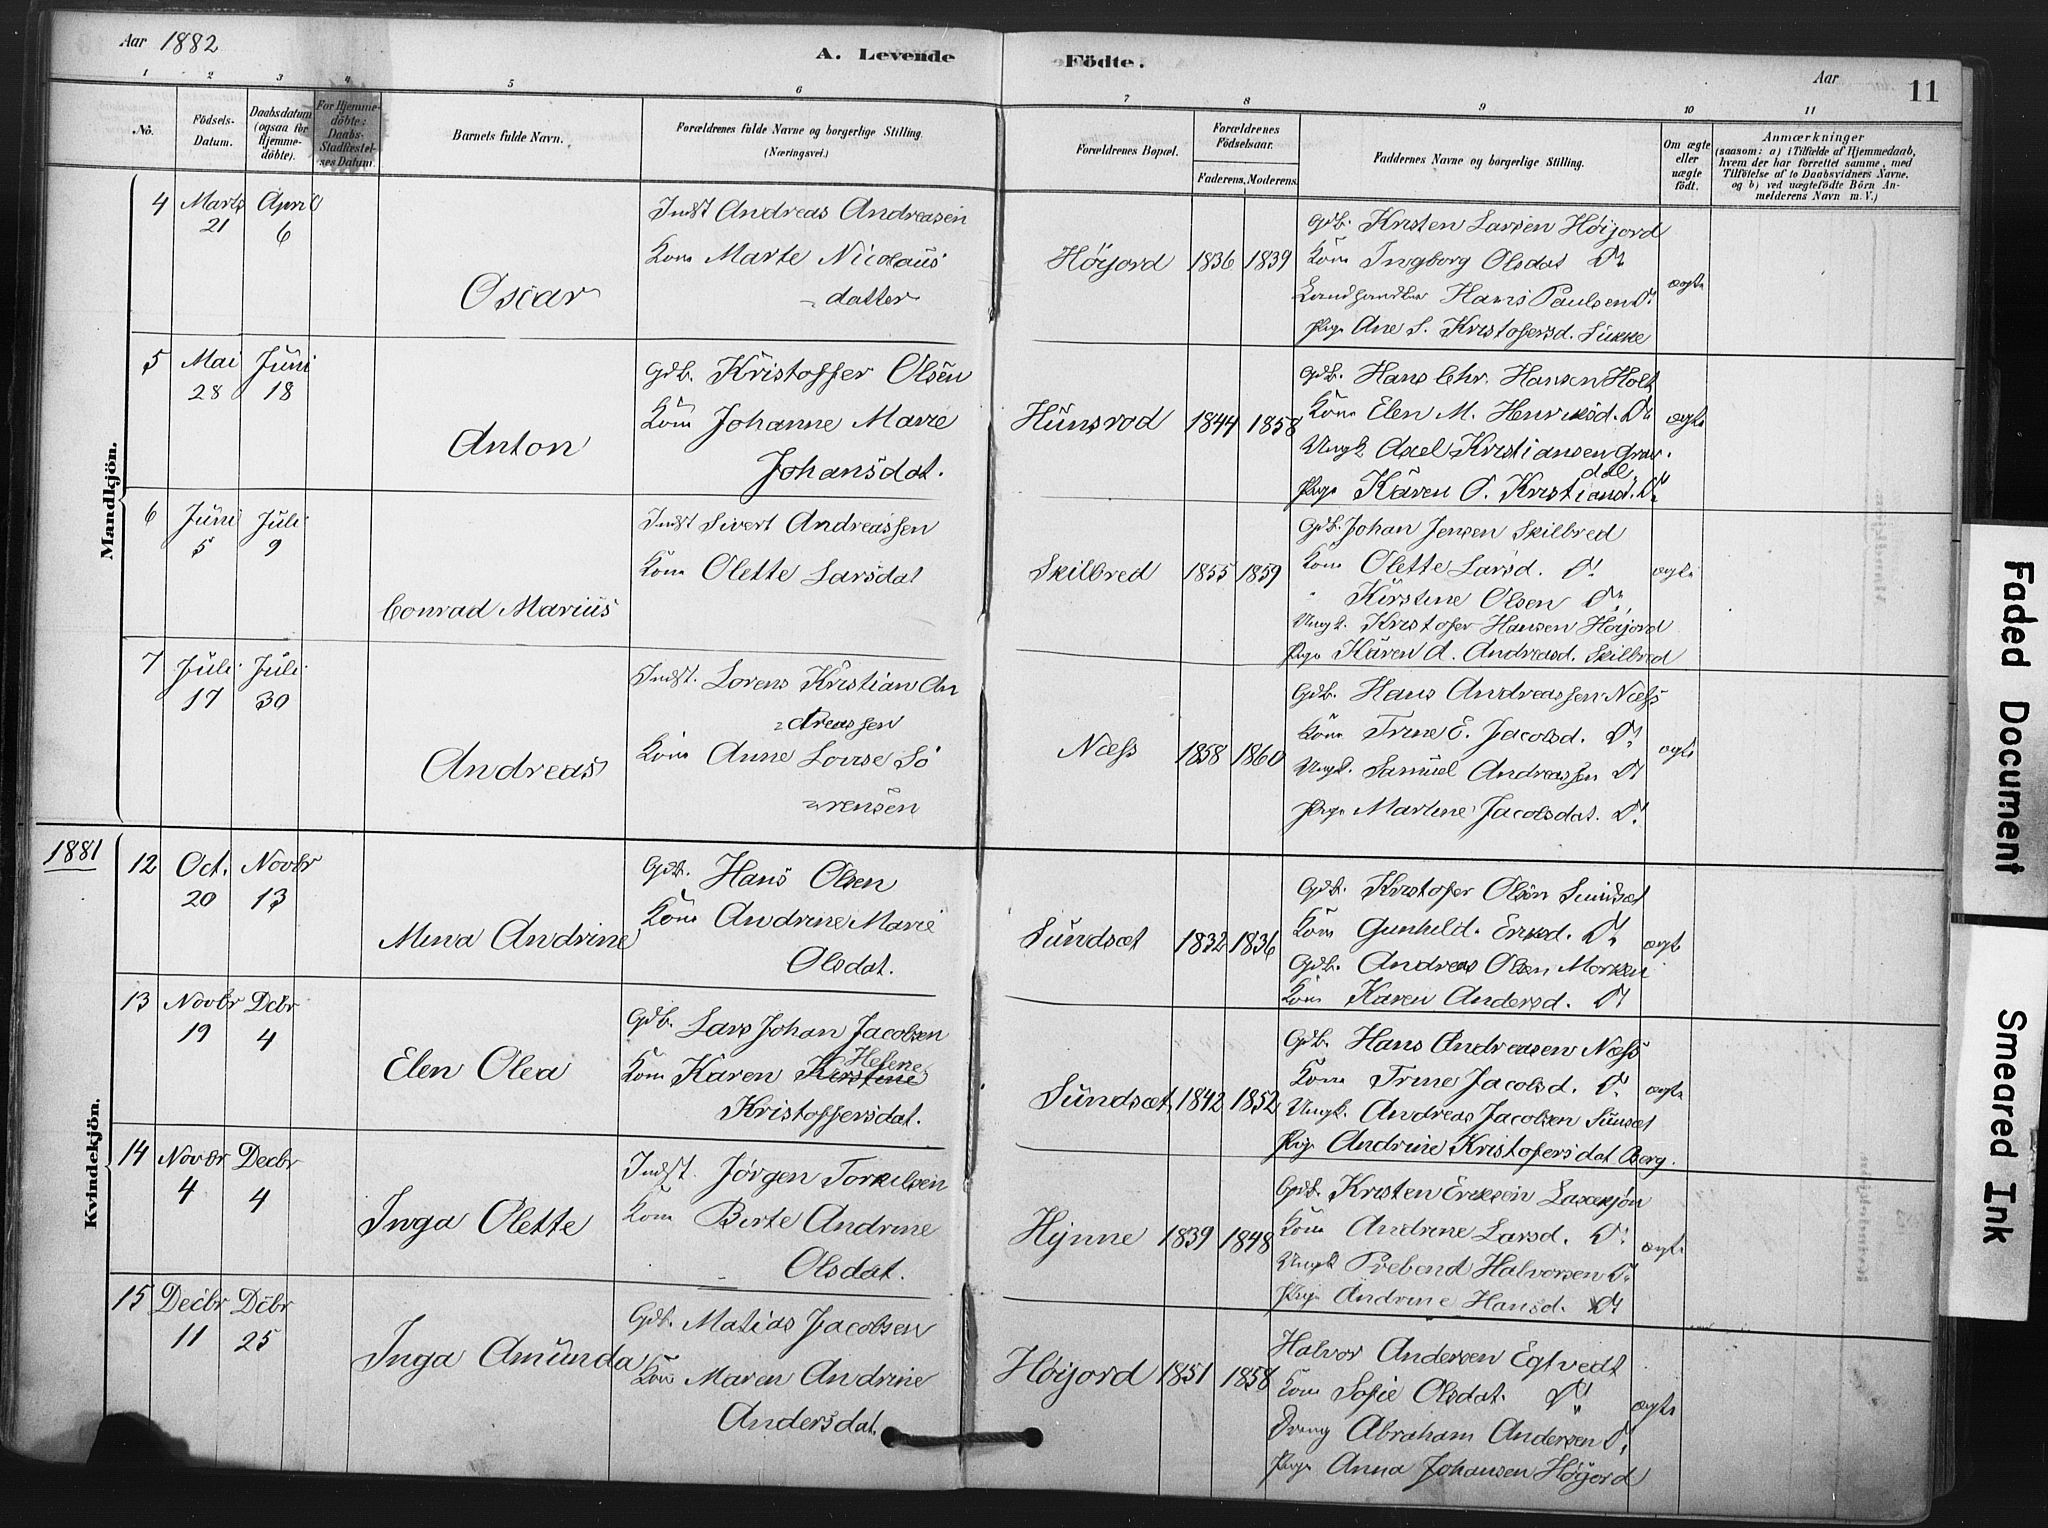 Aar 1882
A. Levende Födte.
Aar
11
1 2 3 4 5 6 7 8 9 10 11
No.
Födsels-Datum.
Daabsdatum (ogsaa for Hjemme-döbte).
For Hjemme-döbte: Daabs-Stadfæstelses Datum.
Barnets fulde Navn.
Forældrenes fulde Navne og borgerlige Stilling.
(Næringsvei.)
Forældrenes Bopæl.
Forældrenes Födselsaar.
Faderens. Moderens.
Faddernes Navne og borgerlige Stilling.
Om ægte eller uægte födt.
Anmærkninger
(saasom: a) i Tilfælde af Hjemmedaab, hvem der har forrettet samme, med Tilföielse af to Daabsvidners Navne. og b) ved uægtefödte Börn Anmelderens Navn m. V.)
Mandkjön.
4 Marts 21 April 6
Oscar
Indst Andreas Andreasen
Kone Marte Nicolaus
datter
Höijord 1836 1839
Gdb. Kristen Larsen Höijord
Kone Ingborg Olsdat Do
Landhandler Hans Paulsen Do
Pige Ane S. Kristofersd. Sukke
ægte
5 Mai 28 Juni 18
Anton
Gdb. Kristoffer Olsen
Kone Johanne Marie
Johansdat.
Hunsrod 1844 1858
Gdb. Hans Chr. Hansen Holt
Kone Elen M. Henriksd. Do
Ungk Axel Kristiansen Grav
dal
Pige Karen O. Kristiansd. Do
ægte
6 Juni 5 Juli 9
Conrad Marius
Indst Sivert Andreassen
Kone Olette Larsdat
Skilbred 1855 1859
Gdb. Johan Jensen Skilbred
Kone Olette Larsd. Do
" Kirstine Olsen Do
Ungk. Kristofer Hansen Höijord
Pige Karen A. Andreasd. Skilbred
ægte
7 Juli 17 Juli 30
Andreas
Indst. Lorens Kristian An
dreassen
Kone Anne Lovise Sö
rensen
Næss 1858 1860
Gdb. Hans Andreassen Næss
Kone Trine E. Jacobsd. Do
Ungk. Samuel Andreassen Do
Pige Martine Jacobsdat. Do
ægte
1881
Kvindekjön.
12 Oct. 20 Novbr 13
Mina Andrine
Gdb. Hans Olsen
Kone Andrine Marie
Olsdat.
Sundsæt 1832 1836
Gdb. Kristofer Olsen Sundsæt
Kone Gunhild Eriksd. Do
Gdb. Andreas Olsen Morken
Kone Karen Andersd. Do
ægte
13 Novbr 19 Dcbr 4
Elen Olea
Gdb. Lars Johan Jacobsen
Helene
Kone Karen Kirstine
Kristoffersdat.
Sundsæt 1842 1852
Gdb. Hans Andreasen Næss
Kone Trine Jacobsd. Do
Ungk. Andreas Jacobsen Sunsæt
Pige Andrine Kristofersdat Borg.
ægte
14 Novbr 4 Decbr 4
Inga Olette
Indst. Jörgen Torkilsen
Kone Berte Andrine
Olsdat.
Hynne 1839 1848
Gdb. Kristen Eriksen
Kone Andrine Larsd. Do
Ungk Prebend Halvorsen Do
Pige Andrine Hansd. Do
ægte
15 Decbr 11 Dcbr 25
Inga Amunda
Gdb. Matias Jacobsen
Kone Maren Andrine
Andersdat.
Höijord 1851 1858
Halvor Andersen Egtvedt
Kone Sofie Olsdat. Do
Dreng Abraham Andersen Do
Pige Anna Johansen Höijord
ægte
Faded Document
Smeared Ink